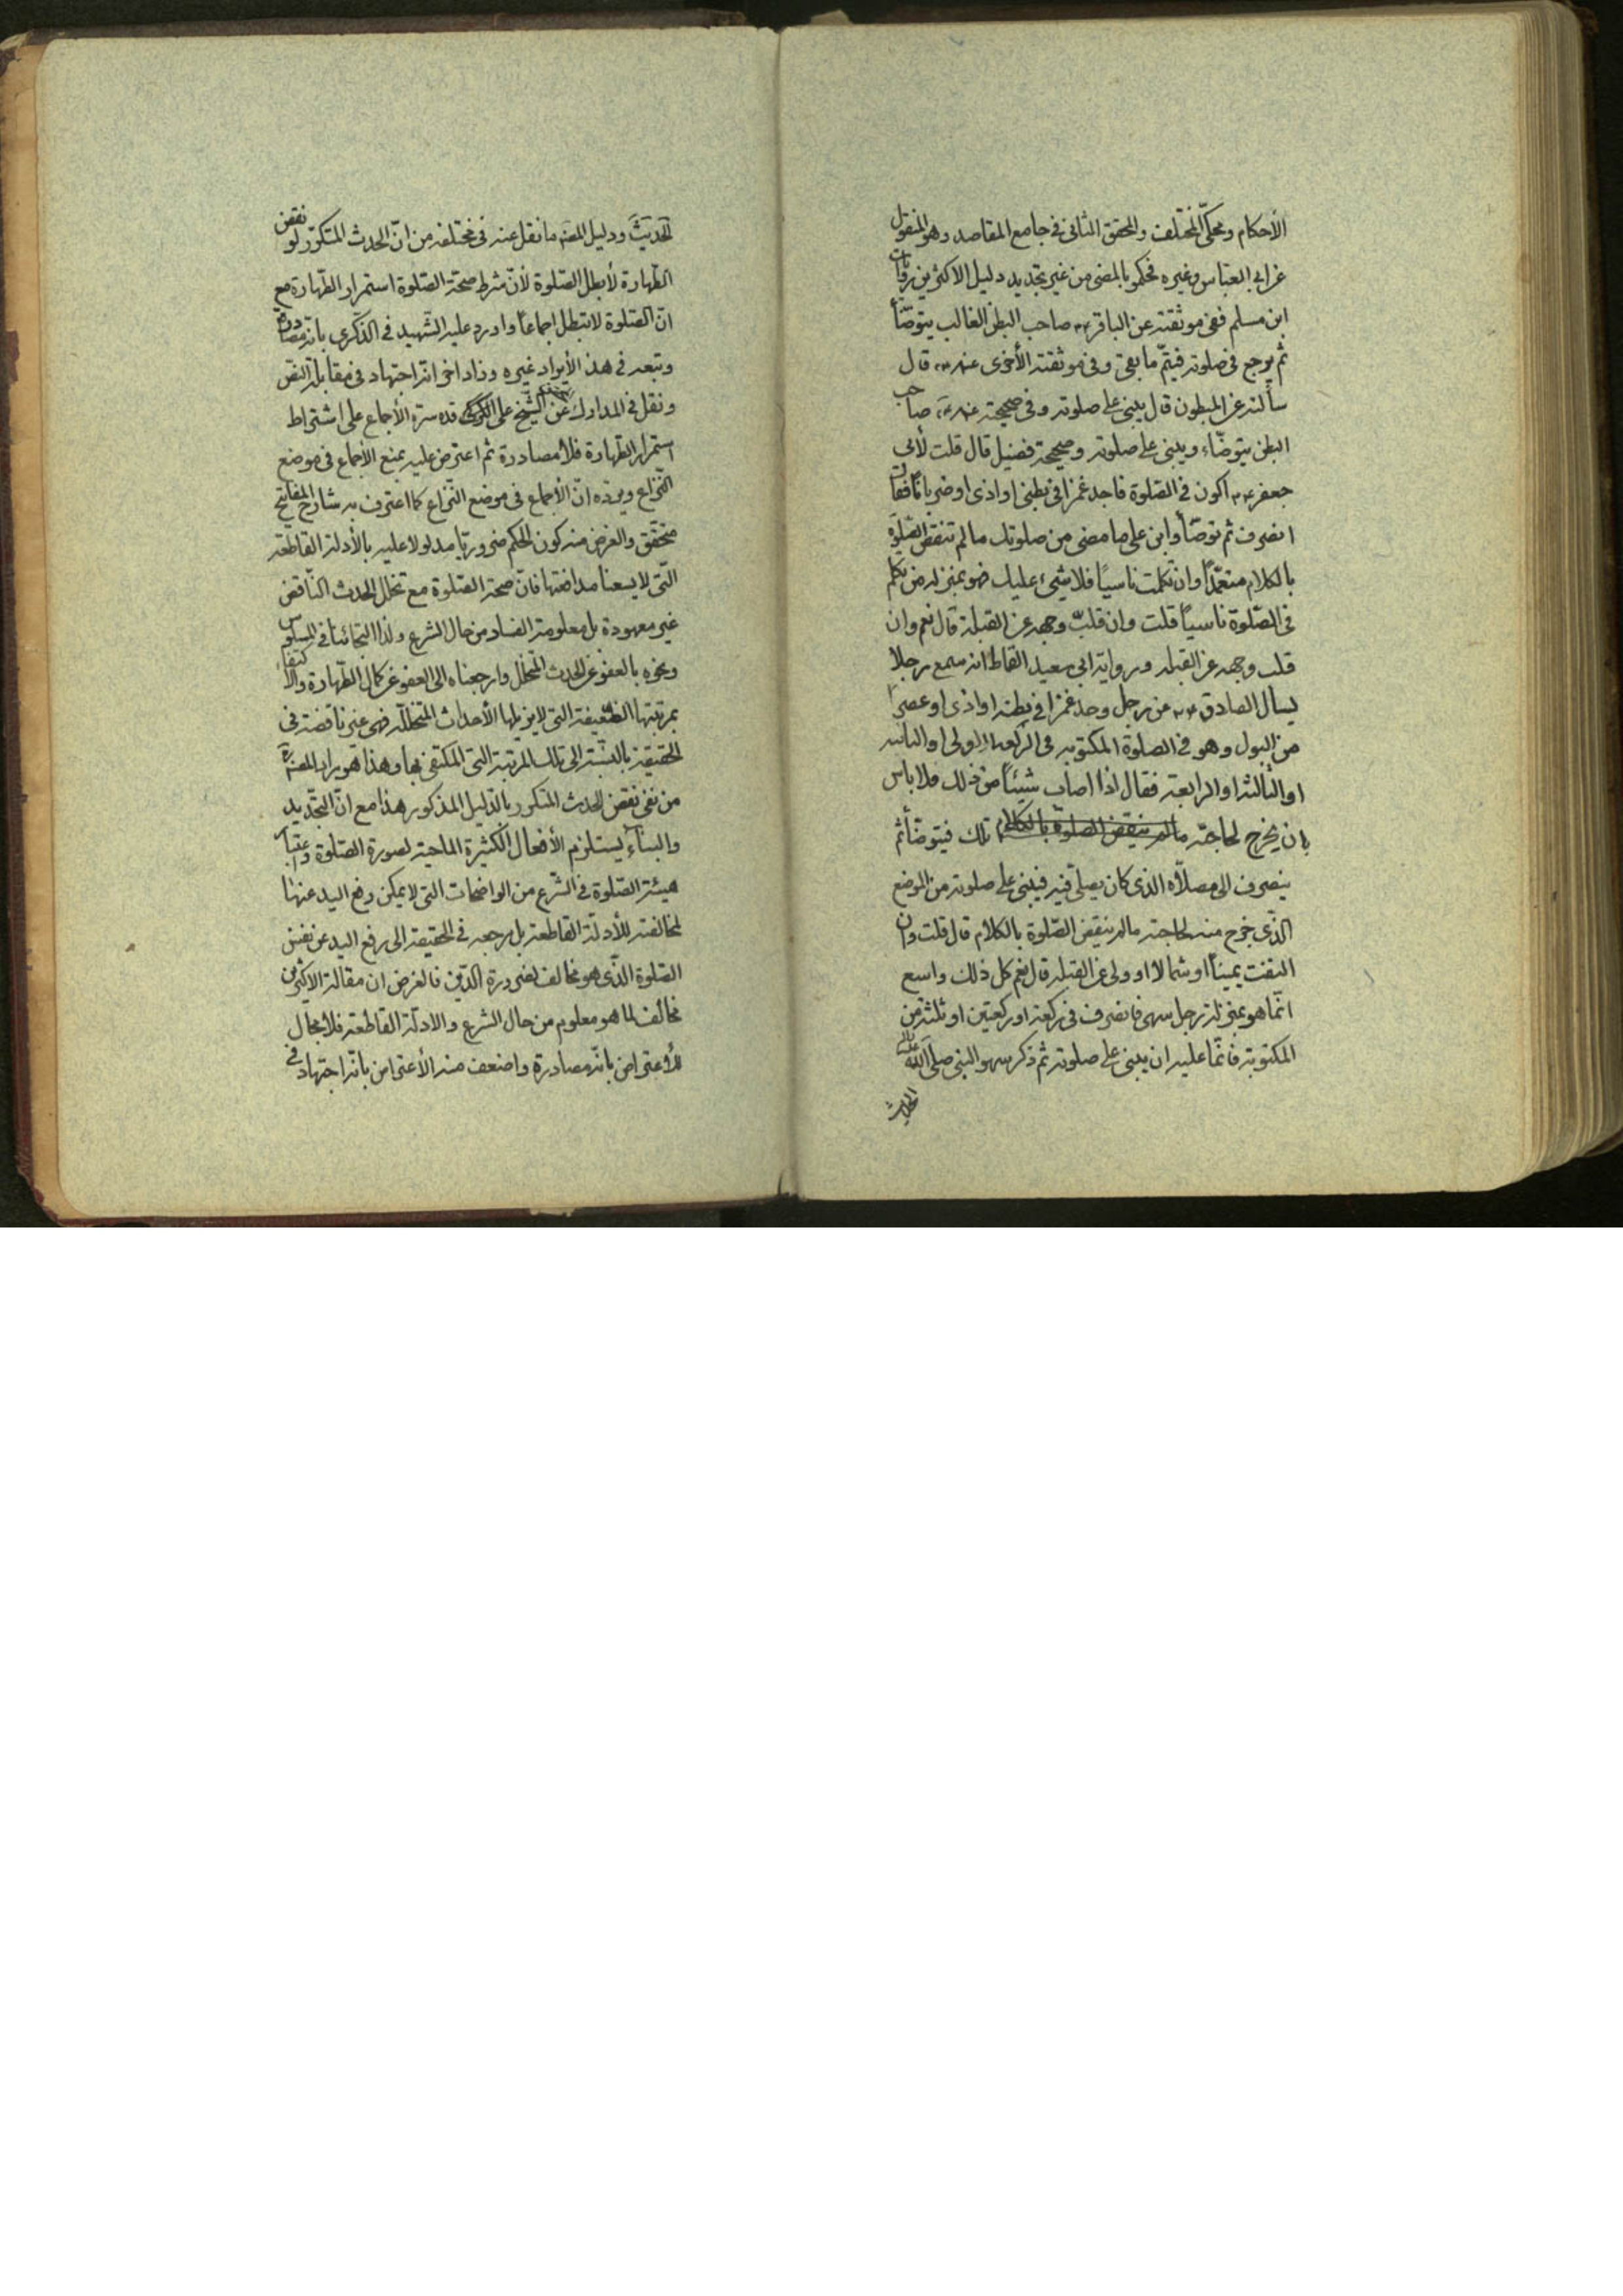 الأحكام ومحكّي المختلف والمحقق الثانى فى جامع المقاصد وهو المنقول
عن ابى العباس وغيره فحكموا بالمضى من غير تجديد دليل الاكثرين روايات
ابن مسلم ففى موثقته عن الباقر ع صاحب البطن الغالب يتوضّأ
ثم يرجع فى صلوته فيتمّ ما بقى وفى موثقته الأخرى عنه ع قال
سألته عن المبطون قال يبنى على صلوته وفى صحيحته عنه ع صاحب
البطن يتوضّاء ويبنى على صلوته وصحيحة فضيل قال قلت لأبى
جعفر ع اكون فى الصّلوة فاجد غمزا فى بطنى او اذى او ضربانا فقال
انصرف ثم توضّأ وابن على ما مضى من صلوتك ما لم تنقض الصّلوة
بالكلام متعمّدًا وان تكلمت ناسيًا فلا شىء عليك فهو بمنزلة من تكلّم
فى الصّلوة ناسيًا قلت وان قلبّ وجهه عن القبلة قال نعم وان
قلب وجهه عن القبله ورواية ابى سعيد القماط انه سمع رجلا
يسأل الصادق ع عن رجل وجد غمزا فى بطنه او اذى او عصرًا
من البول وهو فى الصلوة المكتوبه فى الركعة الاولى او الثانيه
او الثالثة او الرابعة فقال اذا اصاب شيئًا من ذلك فلا باس
بان يخرج لحاجته ما لم ينقض الصلوة بالكلام تلك فيتوضّأ ثم
ينصرف الى مصلّاه الذى كان يصلّى فيه فيبنى على صلوته من الموضع
الذّى خرج منه لحاجته ما لم ينقض الصّلوة بالكلام قال قلت وان
التفت يمينًا او شمالًا او ولى عن القبله قال نعم كل ذلك واسع
انّما هو بمنزلة رجل سهى فانصرف فى ركعة او ركعتين او ثلثة من
المكتوبة فانّما عليه ان يبنى على صلوته ثم ذكر سهو النبى صلى اللّه عليه واله
الحديث
الحديث ودليل المصنّف ما نقل عنه فى مختلفه من انّ الحدث المتكرّر لو نقض
الطّهارة لأبطل الصّلوة لأنّ شرط صحّة الصّلوة استمرار الطّهارة مع
انّ الصّلوة لا تبطل اجماعًا واورد عليه الشّهيد فى الذّكرى بانّه مصادرة
وتبعه فى هذا الأيراد غيره وزاد اخر انّه اجتهاد فى مقابلة النّص
ونقل فى المدارك عن الشّيخ على الكركى قده سرّه الأجماع على اشتراط
استمرار الطّهارة فلا مصادرة ثم اعترض عليه بمنع الأجماع فى موضع
النّزاع ويردّه انّ الأجماع فى موضع النّزاع كما اعترف به شارح المفاتيح
متحقّق والغرض منه كون الحكم ضروريّا مدلولا عليه بالأدلة القاطعة
الّتى لا يسعنا مدافعتها فانّ صحة الصّلوة مع تخلّل الحدث النّاقض
غير معهودة بل معلومة الفساد من حال الشرع ولذا التجائنا فى المسلوس
ونحوه بالعفو عن الحدث المتخلّل وارجعناه الى العفو عن كمال الطّهارة والأكتفاء
بمرتبتها الضّعيفة التى لا يزيلها الأحداث المتخلّلة فهى غير ناقضة فى
الحقيقة بالنّسبة الى تلك المرتبة التى المكتفى بها وهذا هو مراد المصنّف ره
من نفى نقض الحدث المتكرر بالدّليل المذكور هذا مع انّ التجّديد
والبناء يستلزم الأفعال الكثيرة الماحية لصورة الصّلوة واعتبار
هيئة الصّلوة فى الشّرع من الواضحات التى لا يمكن رفع اليد عنها
لمخالفته للأدلّة القاطعة بل مرجعه فى الحقيقة الى رفع اليد عن نفس
الصّلوة الذّى هو مخالف لضرورة الدّين فالغرض ان مقالة الاكثرين
مخالف لما هو معلوم من حال الشرع والادلّة القاطعة فلا مجال
للأعتراض بانّه مصادرة واضعف منه الأعتراض بانّه اجتهاد فى